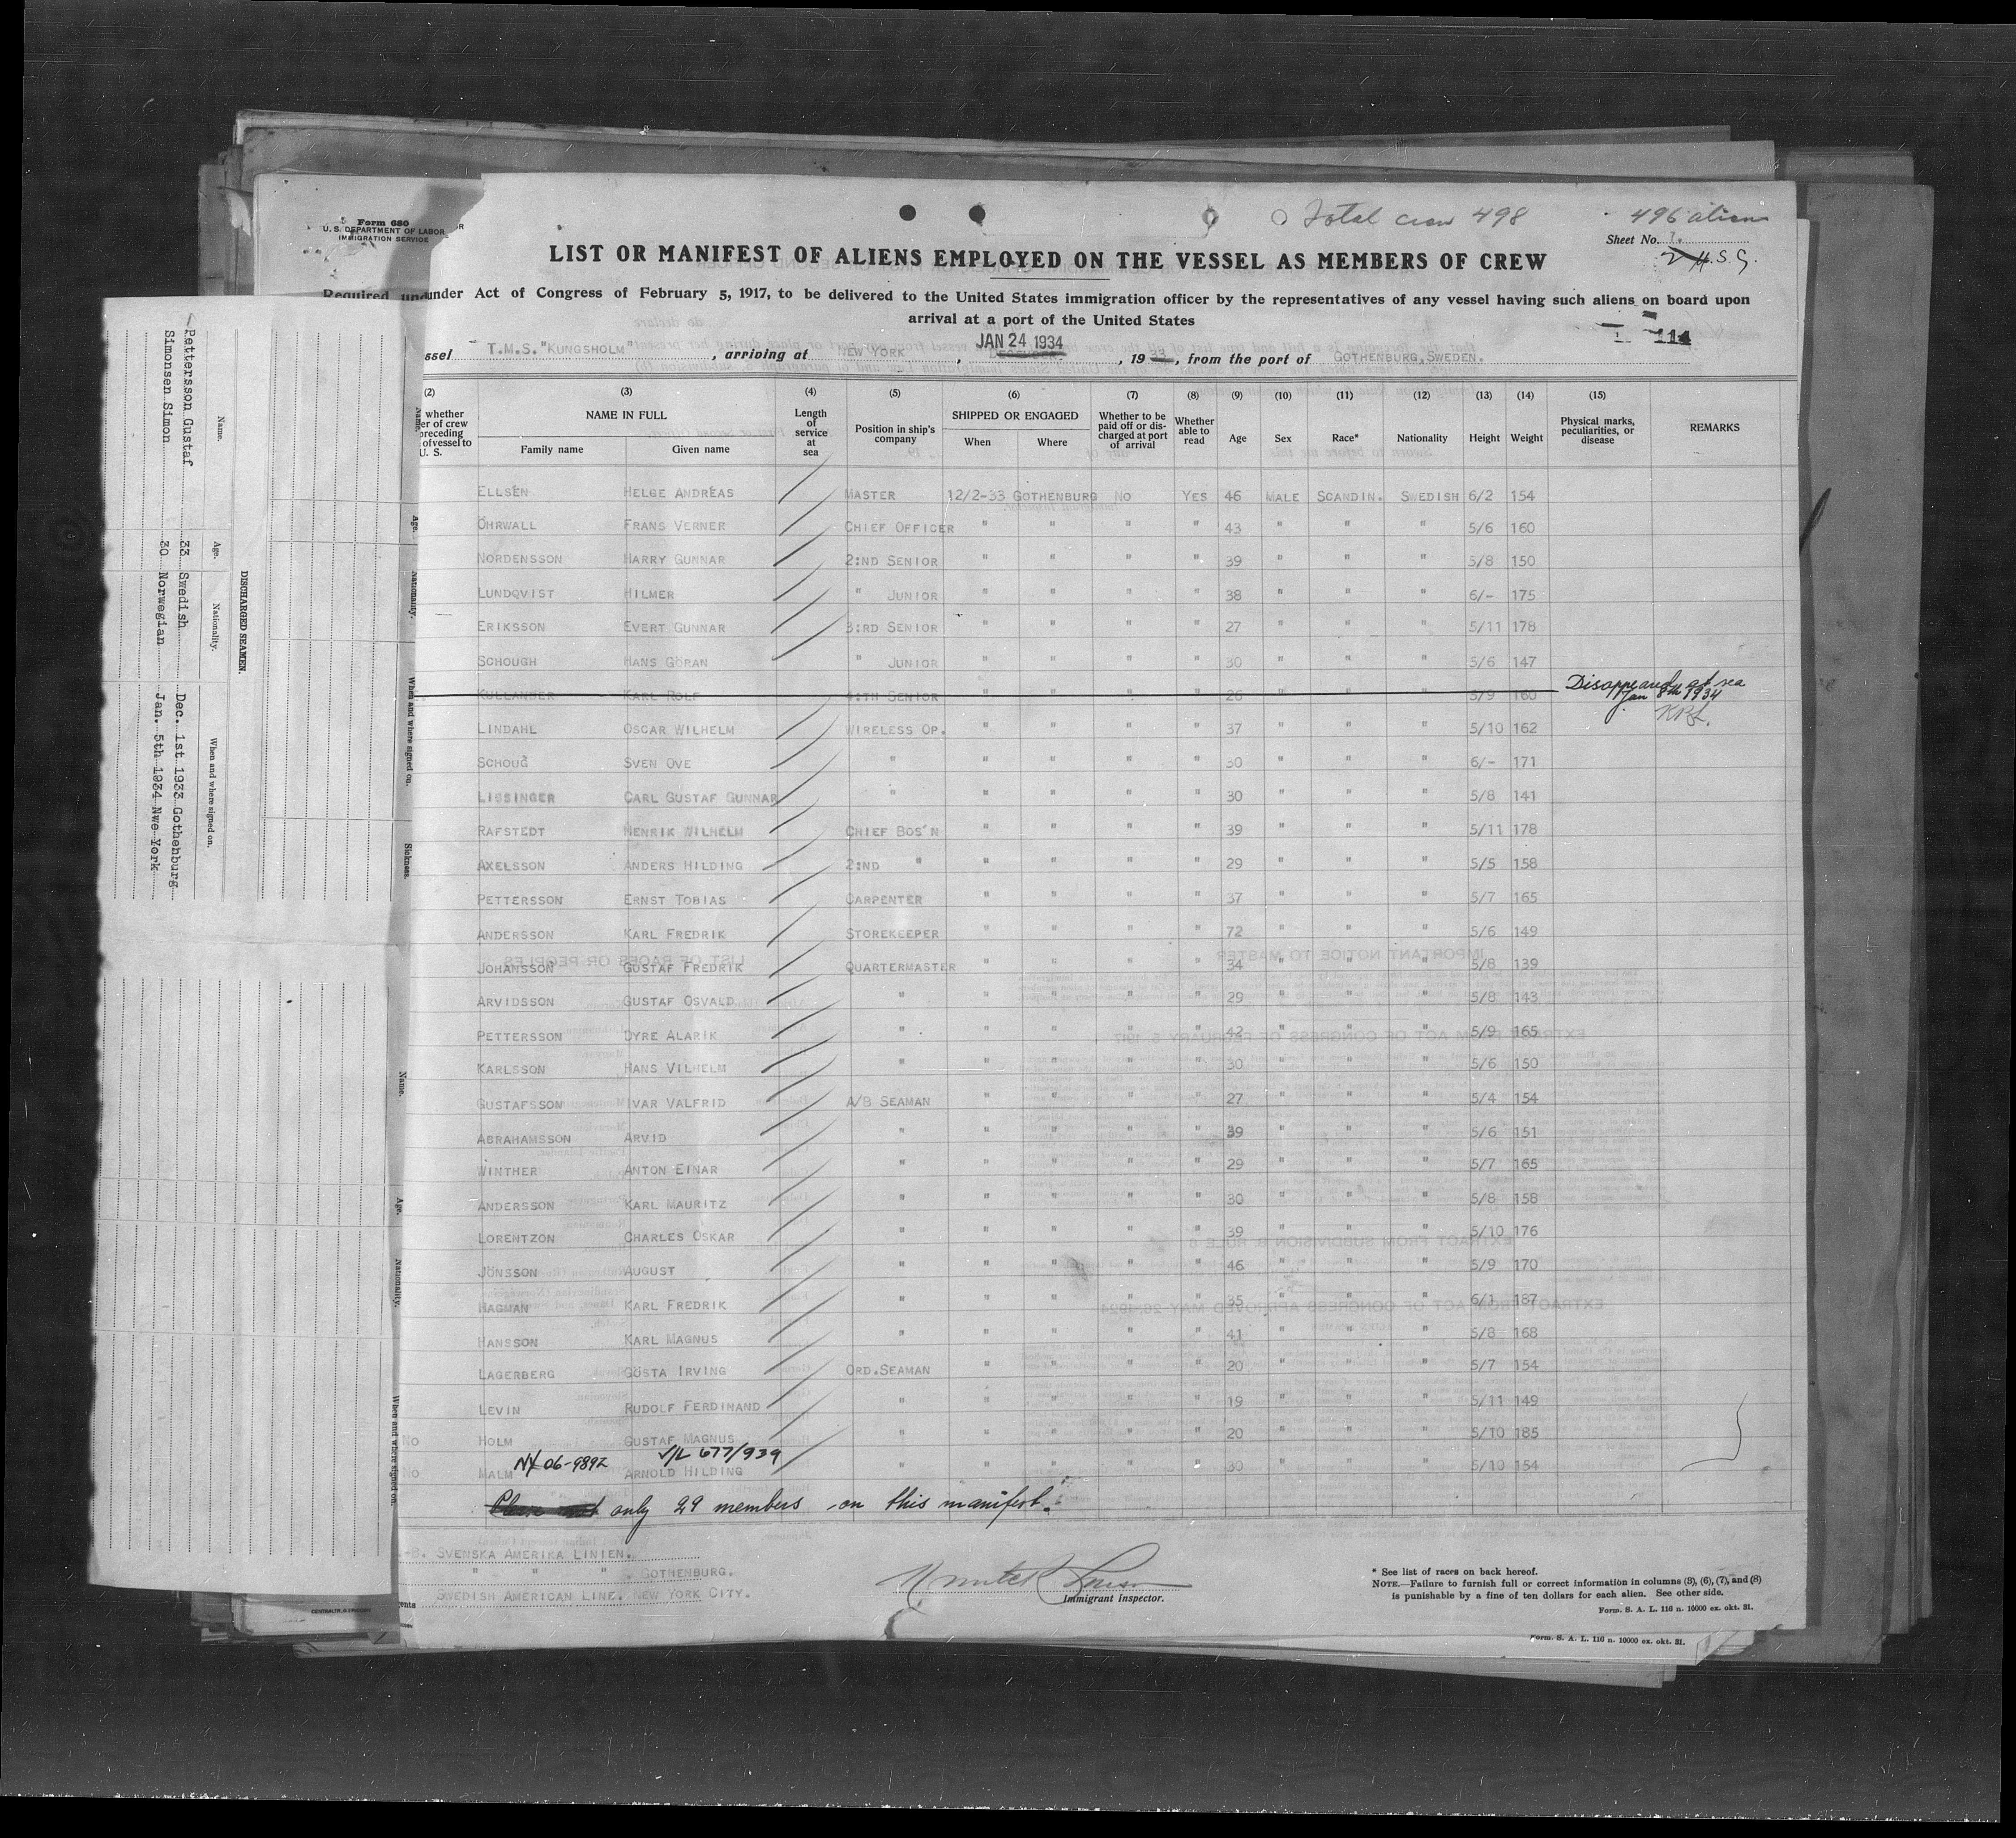 Total crew 498
496 aliens
Form 680
U. S. DEPARTMENT OF LABOR
IMMIGRATION SERVICE
Sheet No. 1.
H.S.G.
LIST OR MANIFEST OF ALIENS EMPLOYED ON THE VESSEL AS MEMBERS OF CREW
Required under Act of Congress of February 5, 1917, to be delivered to the United States immigration officer by the representatives of any vessel having such aliens on board upon
arrival at a port of the United States
114
ssel T.M.S. "KUNGSHOLM", arriving at NEW YORK, JAN 24 1934, 19 , from the port of GOTHENBURG, SWEDEN.
(2) (3) (4) (5) (6) (7) (8) (9) (10) (11) (12) (13) (14) (15)
whether er of crew preceding of vessel to U. S. NAME IN FULL Family name Given name Length of service at sea Position in ship's company SHIPPED OR ENGAGED When Where Whether to be paid off or discharged at port of arrival Whether able to read Age Sex Race* Nationality Height Weight Physical marks, peculiarities, or disease REMARKS
ELLSÉN HELGE ANDRÉAS MASTER 12/2-33 GOTHENBURG NO YES 46 MALE SCANDIN. SWEDISH 6/2 154
ÖHRWALL FRANS VERNER CHIEF OFFICER " " " " 43 " " " 5/6 160
NORDENSSON HARRY GUNNAR 2:ND SENIOR " " " " 39 " " " 5/8 150
LUNDQVIST HILMER " JUNIOR " " " " 38 " " " 6/- 175
ERIKSSON EVERT GUNNAR 3:RD SENIOR " " " " 27 " " " 5/11 178
SCHOUGH HANS GÖRAN " JUNIOR " " " " 30 " " " 5/6 147
KULLANDER KARL ROLF 4:TH SENIOR " " " " 26 " " " 5/9 160 Disappeared at sea
Jan 8th 1934
LINDAHL OSCAR WILHELM WIRELESS OP. " " " " 37 " " " 5/10 162
SCHOUG SVEN OVE " " " " " 30 " " " 6/- 171
LISSINGER CARL GUSTAF GUNNAR " " " " " 30 " " " 5/8 141
RAFSTEDT HENRIK WILHELM CHIEF BOS'N " " " " 39 " " " 5/11 178
AXELSSON ANDERS HILDING 2:ND " " " " " 29 " " " 5/5 158
PETTERSSON ERNST TOBIAS CARPENTER " " " " 37 " " " 5/7 165
ANDERSSON KARL FREDRIK STOREKEEPER " " " " 72 " " " 5/6 149
JOHANSSON GUSTAF FREDRIK QUARTERMASTER " " " " 34 " " " 5/8 139
ARVIDSSON GUSTAF OSVALD " " " " " 29 " " " 5/8 143
PETTERSSON DYRE ALARIK " " " " " 42 " " " 5/9 165
KARLSSON HANS VILHELM " " " " " 30 " " " 5/6 150
GUSTAFSSON IVAR VALFRID A/B SEAMAN " " " " 27 " " " 5/4 154
ABRAHAMSSON ARVID " " " " " 39 " " " 5/6 151
WINTHER ANTON EINAR " " " " " 29 " " " 5/7 165
ANDERSSON KARL MAURITZ " " " " " 30 " " " 5/8 158
LORENTZON CHARLES OSKAR " " " " " 39 " " " 5/10 176
JÖNSSON AUGUST " " " " " 46 " " " 5/9 170
HAGMAN KARL FREDRIK " " " " " 35 " " " 6/1 187
HANSSON KARL MAGNUS " " " " " 41 " " " 5/8 168
LAGERBERG GÖSTA IRVING ORD.SEAMAN " " " " 20 " " " 5/7 154
LEVIN RUDOLF FERDINAND " " " " " 19 " " " 5/11 149
NO HOLM GUSTAF MAGNUS " " " " " 20 " " " 5/10 185
NY 06-9892 V/L 677/939
NO MALM ARNOLD HILDING " " " " " 30 " " " 5/10 154
only 29 members on this manifest.
SVENSKA AMERIKA LINIEN.
" " " , GOTHENBURG.
SWEDISH AMERICAN LINE. NEW YORK CITY.
Immigrant Inspector.
* See list of races on back hereof.
NOTE.—Failure to furnish full or correct information in columns (3), (6), (7), and (8)
is punishable by a fine of ten dollars for each alien. See other side.
Form. S. A. L. 116 n. 10000 ex. okt. 31.
Form. S. A. L. 116 n. 10000 ex. okt. 31.
DISCHARGED SEAMEN.
Name. Age. Nationality. When and where signed on.
Pettersson Gustaf 33 Swedish Dec. 1st 1933 Gothenburg
Simonsen Simon 30 Norwegian Jan. 5th 1934 Nwe York
Name. Age. Nationality. When and where signed on. Sickness.
Name. Age. Nationality. When and where signed on.